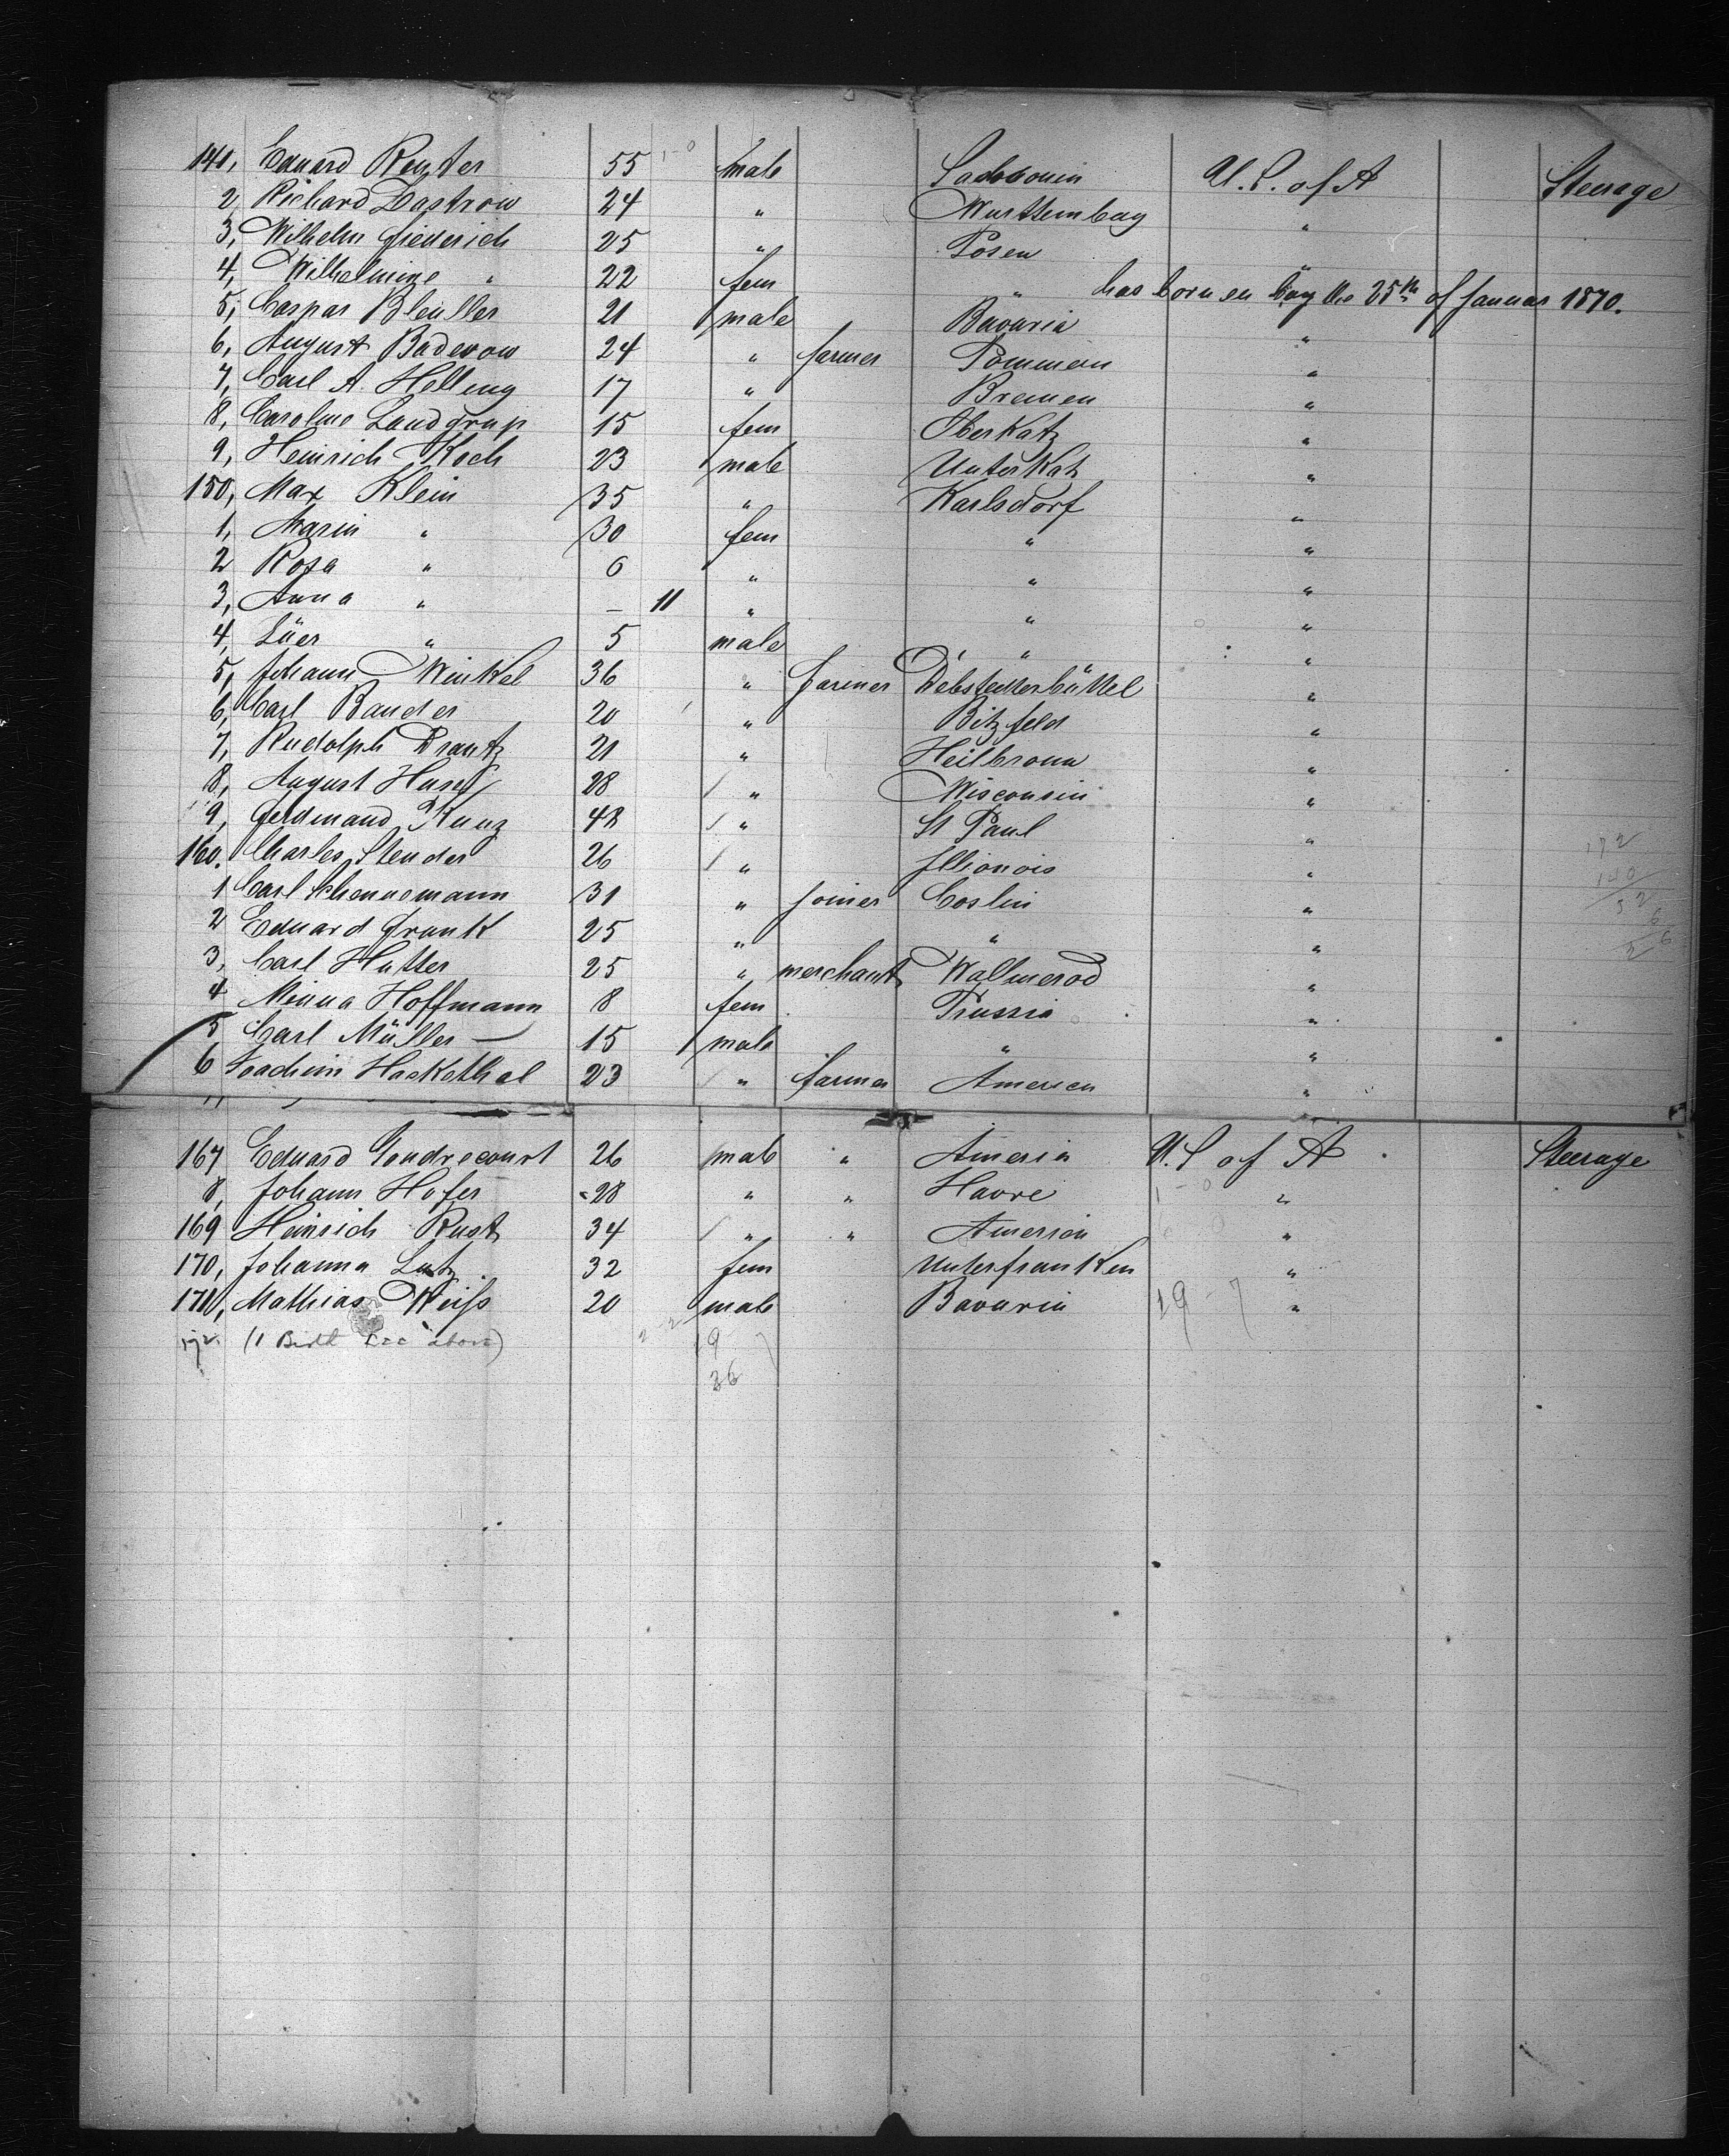 141, Eduard Reuter 55 1-0 male U. S. of A Steerage
2, Richard Dastrow 24 " Wurttemberg "
3, Wilhelm Friederich 25 " Posen "
4, Wilhelmine " 22 fem " has born en boy the 25th of Januar 1870.
5, Caspar Bleuller 21 male Bavaria "
6, August Baderow 24 " farmer Pommern "
7, Carl A. Helling 17 " Bremen "
8, Caroline 15 fem Oberkatz "
9, Heinrich Koch 23 male Unterkatz "
150, Max Klein 35 " Karlsdorf "
1, Marin " 30 fem " "
2 Rosa " 6 " " "
3, Anna " – 11 " " "
4, Lüer " 5 male " "
5, Johann Winkel 36 " farmer Debstedterbüttel "
6, Carl Bander 20 " Bitzfeld "
7, Rudolph Drautz 21 " Heilbronn "
8, August 28 " Wisconsin "
9, Ferdinand Kunz 48 " St Paul "
160. Charles Stender 26 " Illionois "
1 Carl 31 " joiner Coslin "
2 Eduard Frank 25 " " "
3, Carl Hutter 25 " merchant Wallmerod "
4 Minna Hoffmann 8 fem Prussia "
5 Carl Müller – 15 male " "
6 Joachim Hackethal 23 " farmer America "
167 Eduard Gondrecourt 26 male " America U. S of A Steerage
8, Johann Hofer 28 " " Havre 1-0 "
169 Heinrich Rust 34 " " American "
170, Johanna Lutz 32 fem Unterfranken "
171, Mathias Weiss 20 male Bavaria 19-7 "
172 (1 Birth See above) 2-2 19 7
36